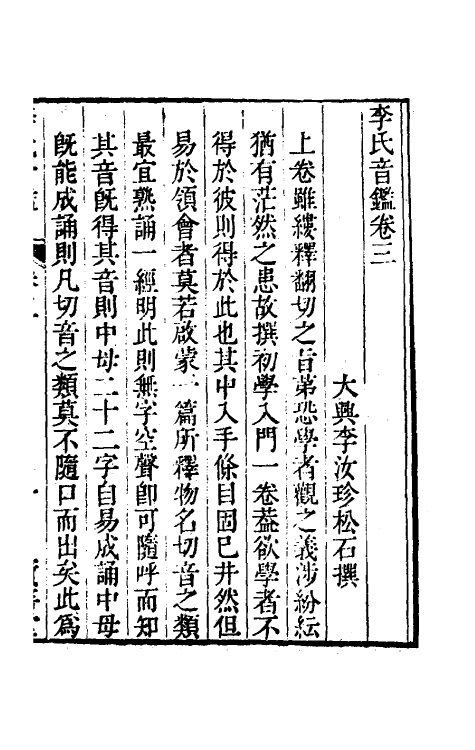 李氏音鑑卷三
大興李汝珍松石撰
上卷雖縷釋翻切之旨第恐學者觀之義涉紛紜
猶有茫然之患故撰初學入門一卷葢欲學者不
得於彼則得於此也其中入手條目固已井然但
易於領會者莫若啟蒙一篇所釋物名切音之類
最宜熟誦一經明此則無字空聲卽可隨呼而知
其音旣得其音則中母二十二字自易成誦中母
旣能成誦則凡切音之類莫不隨口而出矣此爲